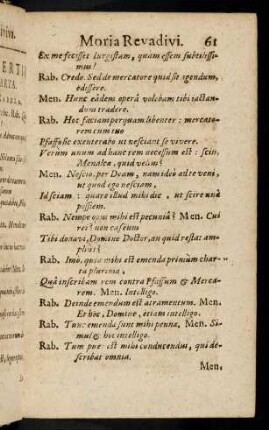 Moria Revadivi. 61
Ex me fecisset Iurgistam, quam essem subtilissi-
mus!
Rab. Credo. Sed de mercatore quid sit agendum,
edissere.
Men. Hanc eâdem operâ volebam tibi iactan-
dum tradere.
Rab. Hoc faciam perquam libenter: mercato-
rem cum tuo
Pfaffo sic exenterabo ut nesciant se vivere.
Verùm unum ad hanc rem necessum est: scin,
Menalca, quid velim?
Men. Nescio, per Deam, nam ideò ad te veni,
ut quod ego nesciam,
Id sciam: quare illud mihi dic, ut scire unà
possiem.
Rab. Nempe opus mihi est pecuniâ? Men. Cui
rei? non caseum
Tibi donavi, Domine Doctor, an quid restat am-
plius?
Rab. Imò, quia mihi est emenda primùm char-
ta plurima,
Quâ inscribam rem contra Pfaffum & Merca-
torem. Men. Intelligo.
Rab. Deinde emendum est atramentum. Men.
Et hoc, Domine, etiam intelligo.
Rab. Tunc emenda sunt mihi penna. Men. Si-
mul & hic intelligo.
Rab. Tum puer est mihi conducendus, qui de-
scribat omnia.
Men.